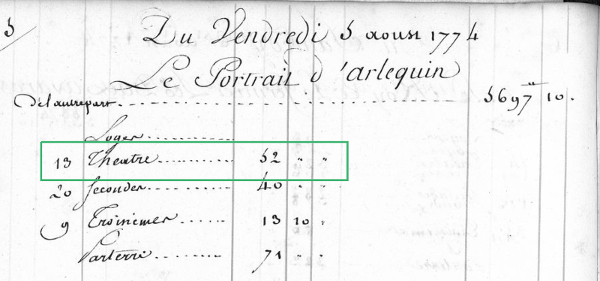 5
Du Vendredi 5 aoust 1774
Le Portrait d'arlequin
De l'autrepart 5697 ᵗᵗ 10 .
Loges
13 Theatre 52 " "
20 Secondes 40 " "
9 Troisiemes 13 10 "
Parterre 71 " "